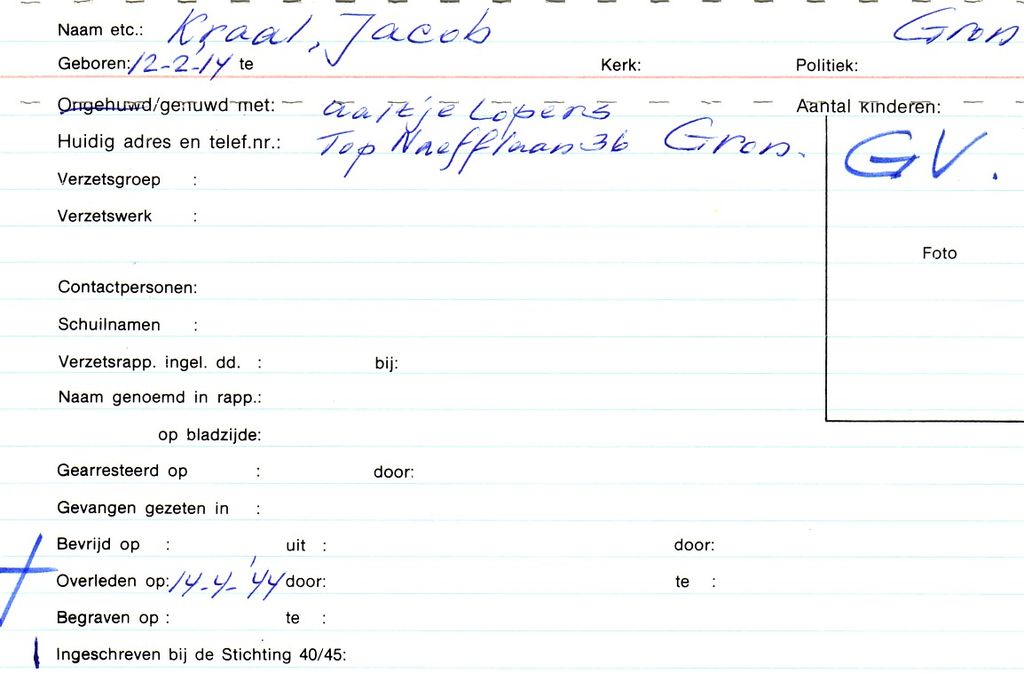 Naam etc.: Kraal, Jacob Gron
Geboren: 12-2-'14 te Kerk: Politiek:
Ongehuwd/gehuwd met: Aaltje Lopers Aantal kinderen:
Huidig adres en telef.nr.: Top Naefflaan 36 Gron. GV.
Verzetsgroep :
Verzetswerk :
Foto
Contactpersonen:
Schuilnamen :
Verzetsrapp. ingel. dd. : bij:
Naam genoemd in rapp.:
op bladzijde:
Gearresteerd op : door:
Gevangen gezeten in :
Bevrijd op : uit : door:
Overleden op: 14-4-'44 door: te :
Begraven op : te :
Ingeschreven bij de Stichting 40/45: